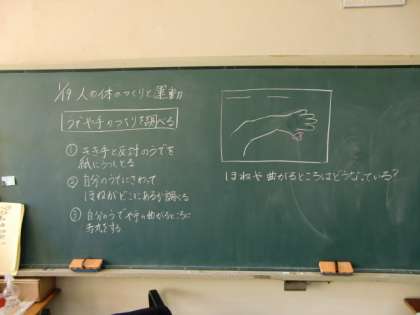 1/19 人の体のつくりと運動
うでや手のつくりを調べる
① きき手と反対のうでを
紙にうつしとる
② 自分のうでにさわって
ほねがどこにあるか調べる
③ 自分のうでや手の曲がるところに
印をする
ほねや曲がるところはどうなっている?